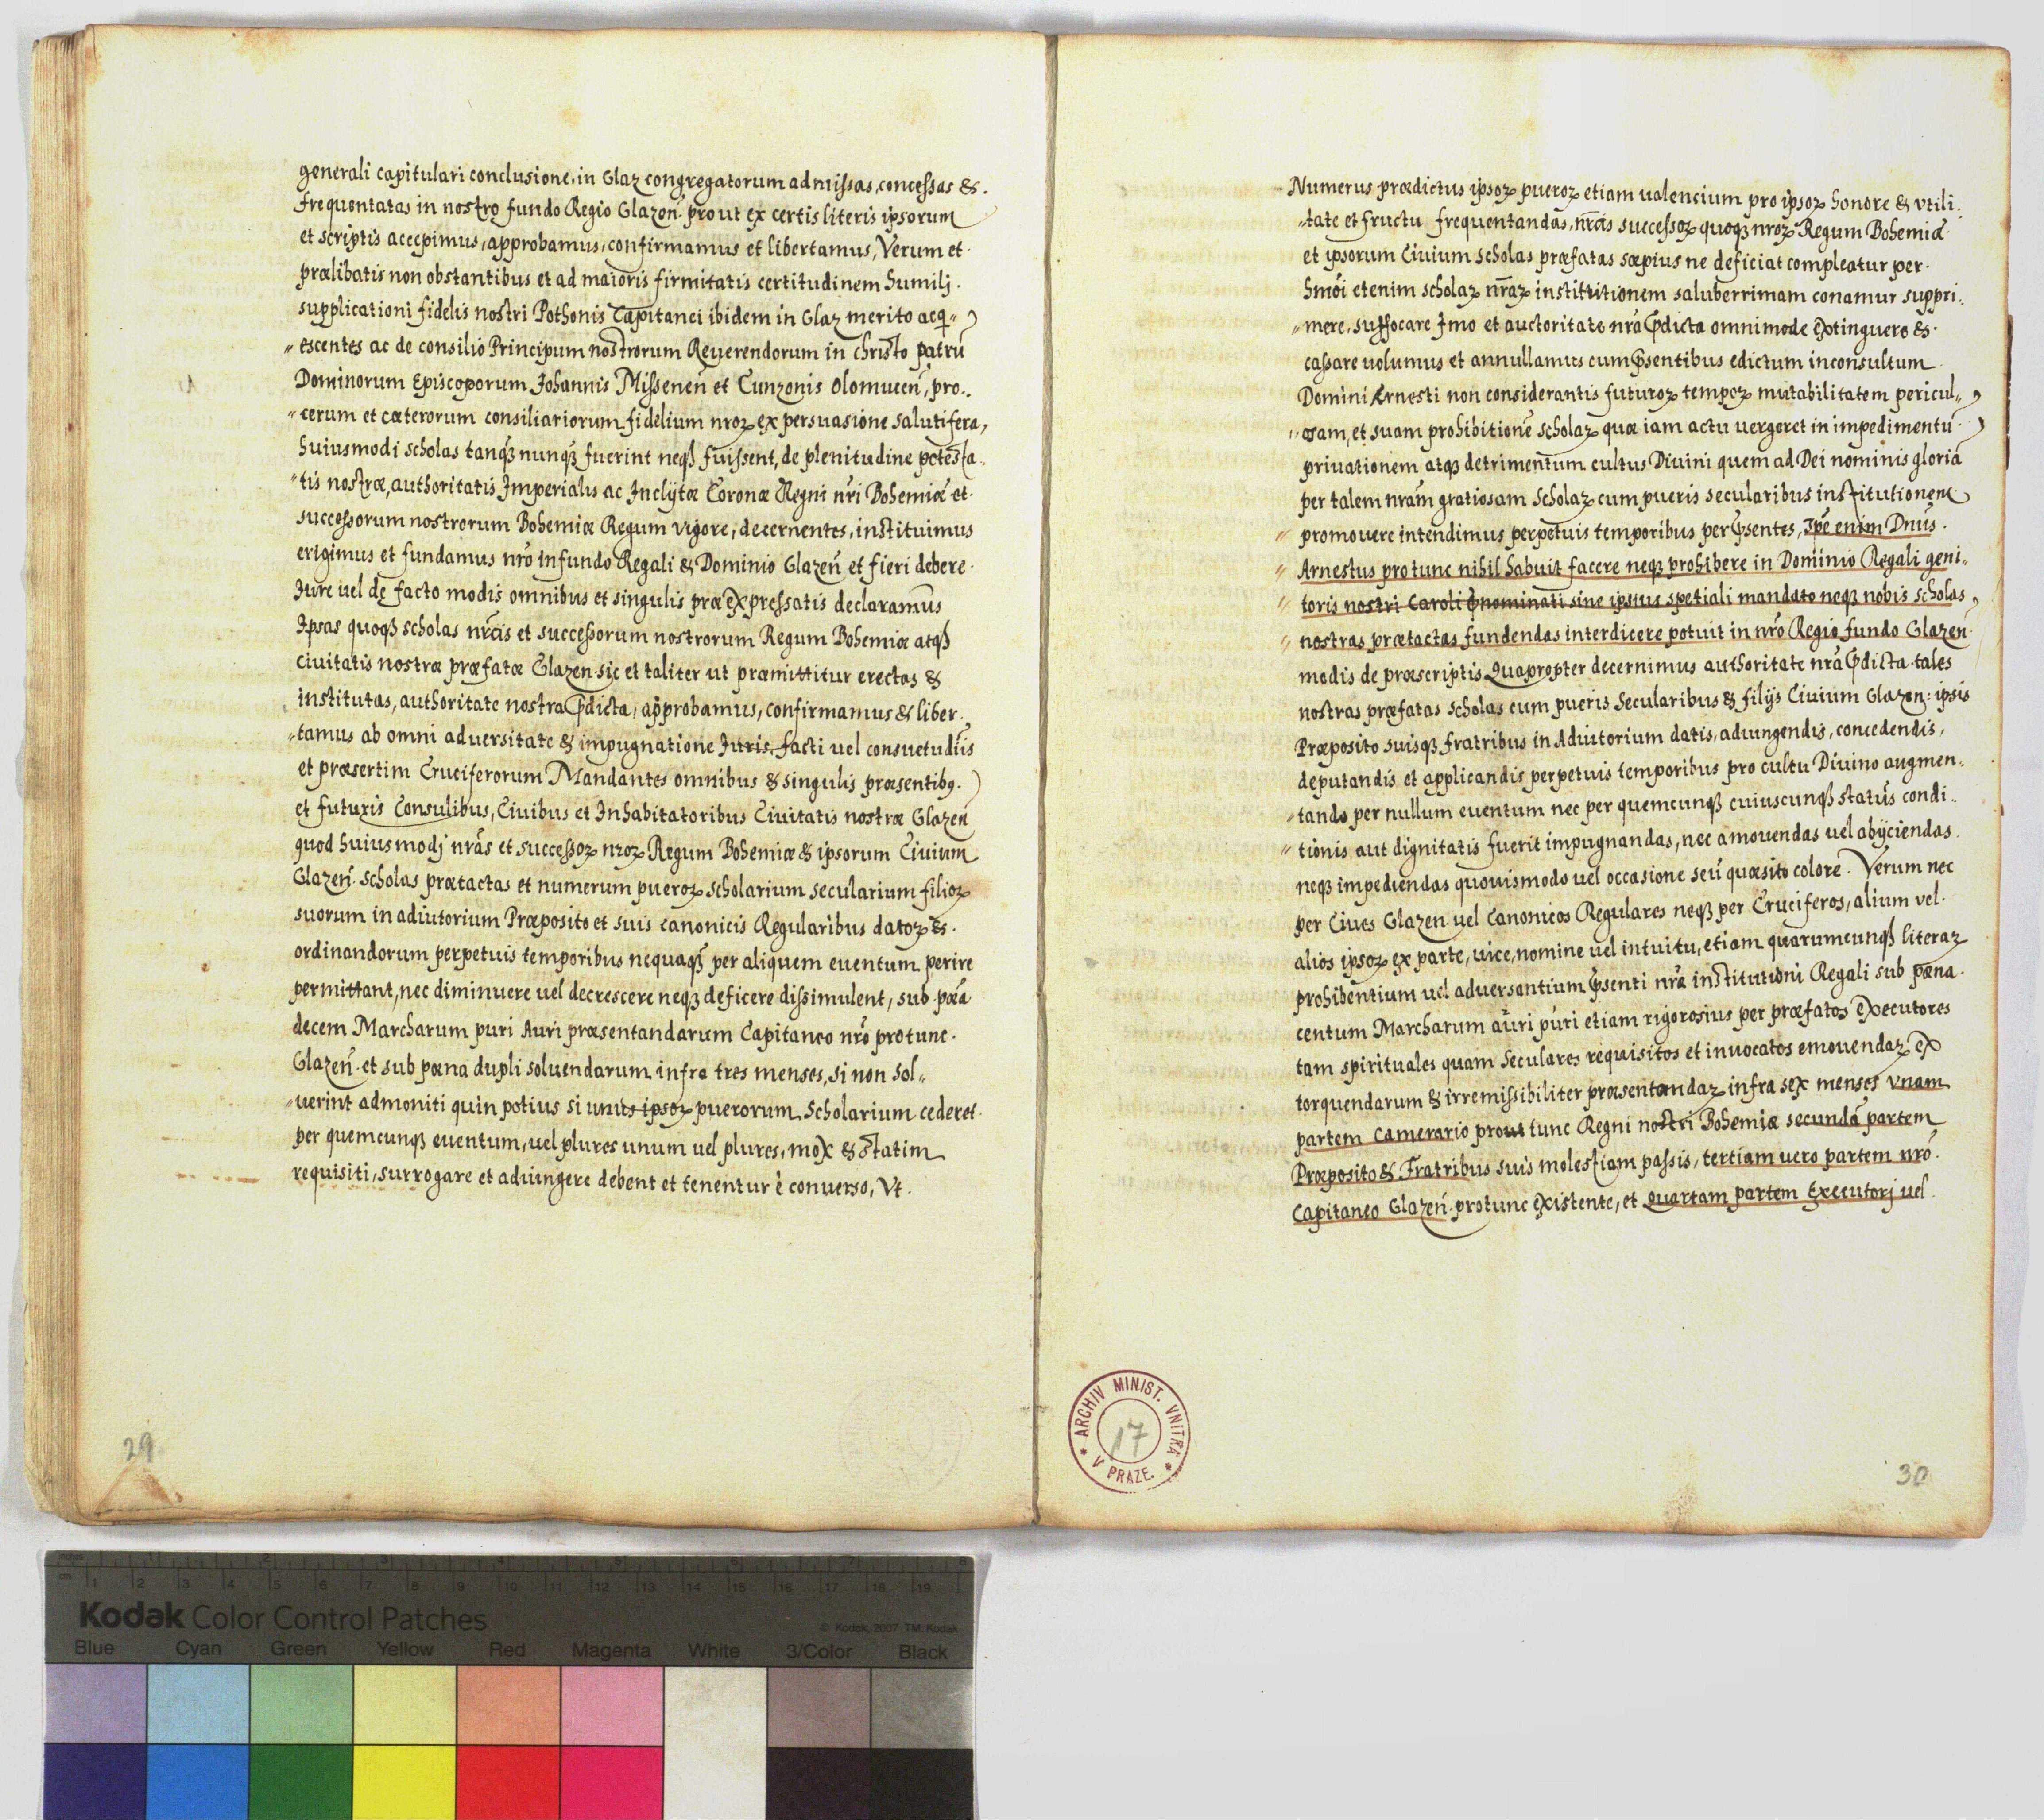 generali capitulari conclusione, in Glaz congregatorum admissas, concessas &.
frequentatas in nostro fundo Regio Glazen̄. prout ex certis literis ipsorum
et scriptis accepimus, approbamus, confirmamus et libertamus, Verum et.
prælibatis non obstantibus et ad maioris firmitatis certitudinem humilj.
supplicationi fidelis nostri Pothonis Capitanei ibidem in Glaz merito acq̃„
„escentes ac de consilio Principum nostrorum Reuerendorum in christo patrū
Dominorum Episcoporum Johannis Missenen̄ et Cunzonis Olomucen̄, pro..
„cerum et cæterorum consiliariorum fidelium nroꝝ ex persuasione salutifera,
huiusmodi scholas tanqꝫ nunqꝫ fuerint neqꝫ fuissent, de plenitudine potesta..
„tis nostræ, authoritatis Imperialis ac Inclytæ Coronæ Regni nr̄i Bohemiæ et.
successorum nostrorum Bohemiæ Regum vigore, decernentes, instituimus
erigimus et fundamus nrō in fundo Regali & Dominio Glazen̄ et fieri debere.
Jure uel de facto modis omnibus et singulis præexpressatis declaramus
Ipsas quoqꝫ scholas nrās et successorum nostrorum Regum Bohemiæ atqꝫ
ciuitatis nostræ præfatæ Glazen. sic et taliter ut præmittitur erectas &
institutas, authoritate nostra p̄dicta, approbamus, confirmamus & liber.
„tamus ab omni aduersitate & impugnatione Iuris, facti uel consuetudīis
et præsertim Cruciferorum Mandantes omnibus & singulis præsentibꝯ.
et futuris Consulibus, Ciuibus et Inhabitatoribus Ciuitatis nostræ Glazen̄
quod huiusmodj nrās et successoꝝ nroꝝ Regum Bohemiæ & ipsorum Ciuium
Glazen̄. scholas prætactas et numerum pueroꝝ scholarium secularium filioꝝ
suorum in adiutorium Præposito et suis canonicis Regularibus datoꝝ &.
ordinandorum perpetuis temporibus nequaqꝫ per aliquem euentum perire
permittant, nec diminuere uel decrescere neqꝫ deficere dissimulent, sub. pœ̄a
decem Marcharum puri Auri præsentandarum Capitaneo nrō protunc.
Glazen̄. et sub pœna dupli soluendarum infra tres menses, si non sol„
„uerint admoniti quin potius si unus ipsoꝝ puerorum Scholarium cederet.
per quemcunqꝫ euentum, uel plures unum uel plures, mox & statim
requisiti, surrogare et adiungere debent et tenentur è conuerso, Vt.
29
Numerus prædictus ipsoꝝ pueroꝝ etiam ualencium pro ipsoꝝ honore & vtili.
„tate et fructu frequentandas, nrās successoꝝ quoqꝫ nroꝝ Regum Bohemiæ
et ipsorum Ciuium scholas præfatas sæpius ne deficiat compleatur per.
hmōi etenim scholaꝝ nrāꝝ institutionem saluberrimam conamur suppri..
„mere, suffocare Imo et auctoritate nrā p̄dicta omnimode extinguere &.
cassare uolumus et annullamus cum p̄sentibus edictum inconsultum
Domini Arnesti non considerantis futuroꝝ tempoꝝ mutabilitatem pericul„
„osam, et suam prohibitionē scholaꝝ quæ iam actu uergeret in impedimentū.
priuationem atqꝫ detrimentum cultus Diuini quem ad Dei nominis gloriā
per talem nrām gratiosam Scholaꝝ cum pueris secularibus institutionem
„ promouere intendimus perpetuis temporibus per p̄sentes, Ipē enim Dnūs.
„ Arnestus protunc nihil habuit facere neqꝫ prohibere in Dominio Regali geni..
„ toris nostri Caroli p̄nominati sine ipsius spetiali mandato neqꝫ nobis scholas
„ nostras prætactas fundendas interdicere potuit in nrō Regio fundo Glazen̄
modis de præscriptis Quapropter decernimus authoritate nrā p̄dicta tales
nostras præfatas scholas cum pueris Secularibus & filijs Ciuium Glazen: ipsis
Præposito suisqꝫ fratribus in Adiutorium datis, adiungendis, concedendis,
deputandis et applicandis perpetuis temporibus pro cultu Diuino augmen..
„tando per nullum euentum nec per quemcunqꝫ cuiuscunqꝫ status condi..
„tionis aut dignitatis fuerit impugnandas, nec amouendas uel abijciendas.
neqꝫ impediendas quouismodo uel occasione seù quæsito colore. Verum nec
per Ciues Glazen uel Canonicos Regulares neqꝫ per Cruciferos, alium vel.
alios ipsoꝝ ex parte, uice, nomine uel intuitu, etiam quarumcunqꝫ literaꝝ
prohibentium uel aduersantium p̄senti nrāe institutioni Regali sub pœna.
centum Marcharum auri puri etiam rigorosius per præfatos executores
tam spirituales quam Seculares requisitos et inuocatos emouendaꝝ ex
torquendarum & irremissibiliter præsentandaꝝ infra sex menses vnam
partem Camerario prout tunc Regni nostri Bohemiæ secundā partem
Præposito & Fratribus suis molestiam passis, tertiam uero partem nrō.
Capitaneo Glazen̄. protunc existente, et quartam partem Executorj uel.
ARCHIV MINIST. VNITRA
V PRAZE.
17
30
inches
cm
1 2 3 4 5 6 7 8 9 10 11 12 13 14 15 16 17 18 19
Kodak Color Control Patches
© Kodak, 2007 TM: Kodak
Blue Cyan Green Yellow Red Magenta White 3/Color Black